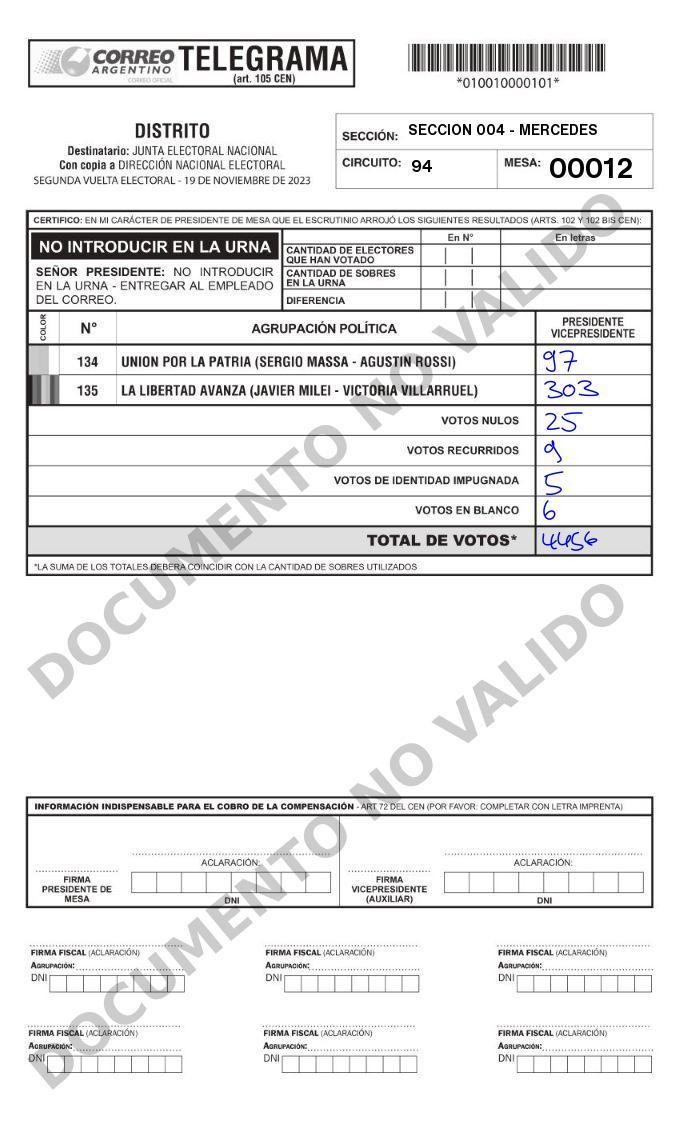 CORREO
ARGENTINO
CORREO OFICIAL
TELEGRAMA
(art. 105 CEN)
*010010000101*
DISTRITO
Destinatario: JUNTA ELECTORAL NACIONAL
Con copia a DIRECCIÓN NACIONAL ELECTORAL
SEGUNDA VUELTA ELECTORAL - 19 DE NOVIEMBRE DE 2023
SECCIÓN: SECCION 004 - MERCEDES
CIRCUITO: 94 MESA: 00012
CERTIFICO: EN MI CARÁCTER DE PRESIDENTE DE MESA QUE EL ESCRUTINIO ARROJÓ LOS SIGUIENTES RESULTADOS (ARTS. 102 Y 102 BIS CEN):
NO INTRODUCIR EN LA URNA
SEÑOR PRESIDENTE: NO INTRODUCIR
EN LA URNA - ENTREGAR AL EMPLEADO
DEL CORREO.
En N° En letras
CANTIDAD DE ELECTORES
QUE HAN VOTADO
CANTIDAD DE SOBRES
EN LA URNA
DIFERENCIA
COLOR N° AGRUPACIÓN POLÍTICA PRESIDENTE
VICEPRESIDENTE
134 UNION POR LA PATRIA (SERGIO MASSA - AGUSTIN ROSSI) 97
135 LA LIBERTAD AVANZA (JAVIER MILEI - VICTORIA VILLARRUEL) 303
VOTOS NULOS 25
VOTOS RECURRIDOS 9
VOTOS DE IDENTIDAD IMPUGNADA 5
VOTOS EN BLANCO 6
TOTAL DE VOTOS* 4456
*LA SUMA DE LOS TOTALES DEBERA COINCIDIR CON LA CANTIDAD DE SOBRES UTILIZADOS
DOCUMENTO NO VALIDO
DOCUMENTO NO VALIDO
INFORMACIÓN INDISPENSABLE PARA EL COBRO DE LA COMPENSACIÓN - ART 72 DEL CEN (POR FAVOR: COMPLETAR CON LETRA IMPRENTA)
FIRMA
PRESIDENTE DE
MESA
ACLARACIÓN:
DNI
FIRMA
VICEPRESIDENTE
(AUXILIAR)
ACLARACIÓN:
DNI
FIRMA FISCAL (ACLARACIÓN)
AGRUPACIÓN:
DNI
FIRMA FISCAL (ACLARACIÓN)
AGRUPACIÓN:
DNI
FIRMA FISCAL (ACLARACIÓN)
AGRUPACIÓN:
DNI
FIRMA FISCAL (ACLARACIÓN)
AGRUPACIÓN:
DNI
FIRMA FISCAL (ACLARACIÓN)
AGRUPACIÓN:
DNI
FIRMA FISCAL (ACLARACIÓN)
AGRUPACIÓN:
DNI